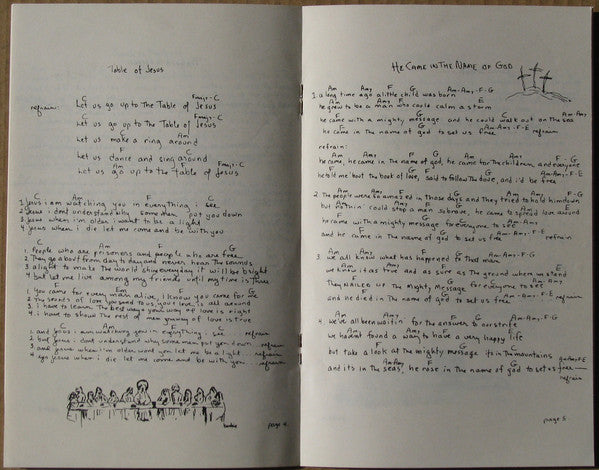 Table of Jesus
C Fmaj7-C
refrain: Let us go up to The Table of Jesus
Fmaj7-C
Let us go up to The Table of Jesus
Am
Let us make a ring around
F
Let us dance and sing around
Am Fmaj7-C
Let us go up to the table of Jesus
C Am F G
1 Jesus i am watching you in everything i see
2 Jesus i dont understand why some men put you down
3 Jesus when i'm older i want to be a light
4 Jesus when i die let me come and be with you
C Am F G
1. people who are prisoners and people who are free
2. They go about from day to day and never hear The sounds
3 a light to make The world shine everyday it will be bright
4 but let me live among my friends until my time is Through
F Em
1. you came for every man alive, I know you came for me
2 The sounds of love you send to us your love is all around
3. i have to learn The best ways your way of love is right
4. i have to show The rest of men your way of love is true
Am F G C
1. and Jesus i am watching you in everything i see refrain
2. but Jesus i dont understand why some men put you down refrain
3. and Jesus when i'm older wont you let me be a light refrain
4 Jesus when i die let me come and be with you refrain
page 4
He Came in The Name of God
Am Am7 F G Am-Am7-F-G
1. a long time ago a little child was born
Am Am7 F E
he grew to be a man who could calm a storm
F G Am-Am7
he came with a mighty message and he could walk out on The sea
F G Am-Am7-F-E
he came in the name of god to set us free refrain
refrain:
Am Am7 F G Am Am7 F-G
he came, he came in the name of god, he came for The children, and everyone
Am Am7 F G Am-Am7-F-E
he told me bout the book of love, said to follow The dove, and i'd be free
Am Am7 F G Am Am7 F-G
2. The people were so amazed in Those days and They tried to hold him down
Am Am7 F E
but nothin' could stop a man so brave, he came to spread love around
F G Am-Am7
he came with a mighty message for everyone to see
F G Am-Am7-F-E
and he came in the name of god to set us free refrain
Am Am7 F G Am-Am7 F-G
3. we all know what has happened to that man
Am Am7 F E
we know it as true and as sure as The ground where we stand
F G Am-Am7
They NAILED up The mighty message for everyone to see
F G Am-Am7-F-E
and he died in the name of god to set us free refrain
Am Am7 F G Am-Am7 F-G
4. we've all been waitin' for the answers to our strife
Am Am7 F E
we haven't found a way to have a very happy life
F G
but take a look at the mighty message its in the mountains
Am-Am7 F G Am-Am7-F-E
and its in the seas, he rose in the name of god to set us free
refrain
page 5